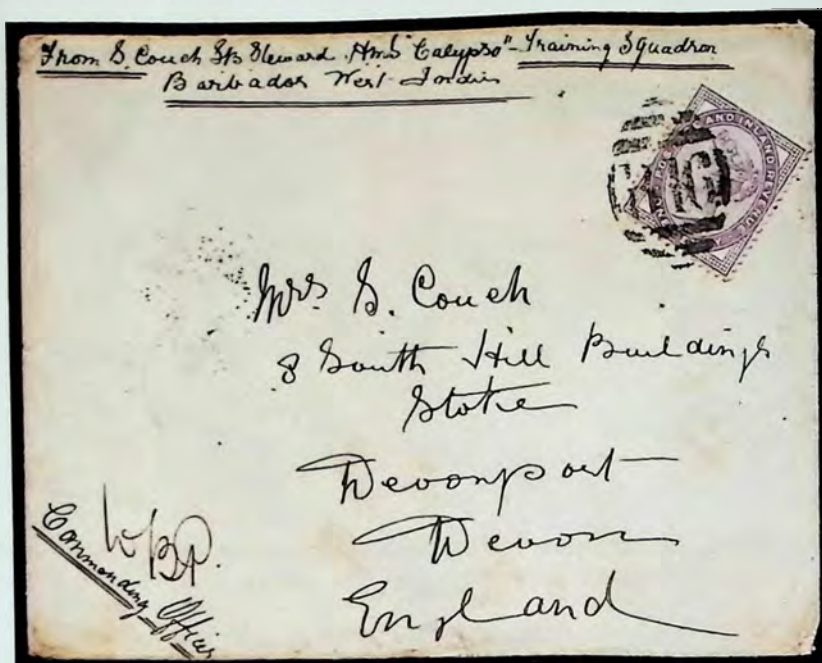 From S. Couch Sh's Steward. HMS "Calypso" - Training Squadron
Barbados West Indies
POSTAGE AND INLAND REVENUE
Mrs S. Couch
8 South Hill Buildings
Stoke
Devonport
Devon
England
Commanding Officer